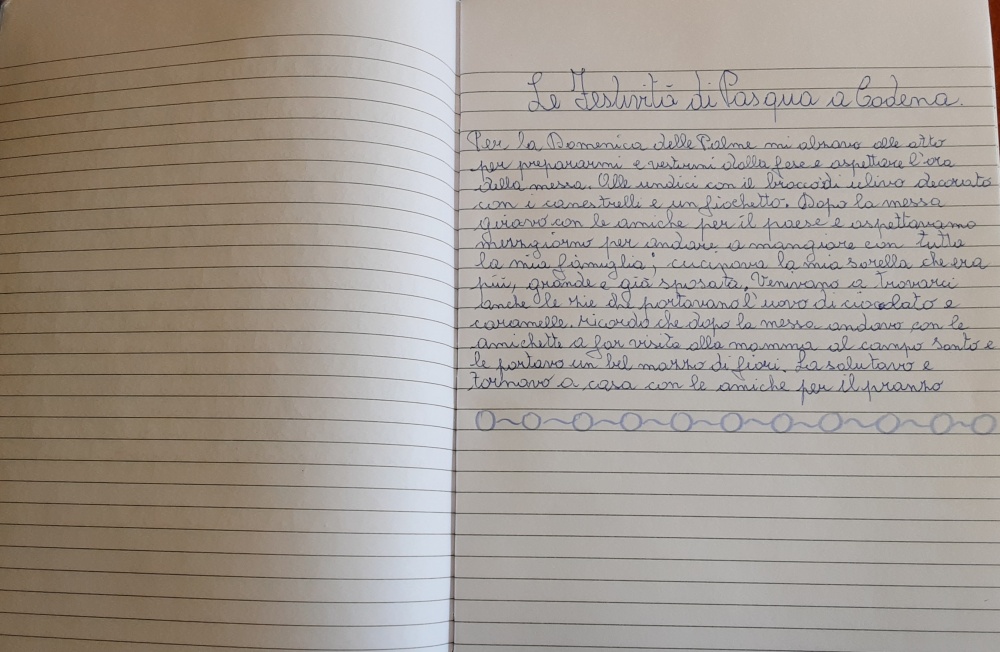 Le Festività di Pasqua a Codena.
Per la Domenica delle Palme mi alzavo alle otto
per prepararmi e vestirmi dalla fese e aspettare l'ora
della messa. Alle undici con il braccodi ulivo decorato
con i canestrelli e un fiochetto. Dopo la messa
giravo con le amiche per il paese e aspettavamo
mezzgiorno per andare a mangiare con tutta
la mia famiglia; cucinava la mia sorella che era
più, grande e già sposata. Venivano a trovarci
anche le zie che portavano l'uovo di cioccolato e
caramelle. ricordo che dopo la messa andavo con le
amichette a far visita alla mamma al campo santo e
le portavo un bel mazzo di fiori. La salutavo e
tornavo a casa con le amiche per il pranzo